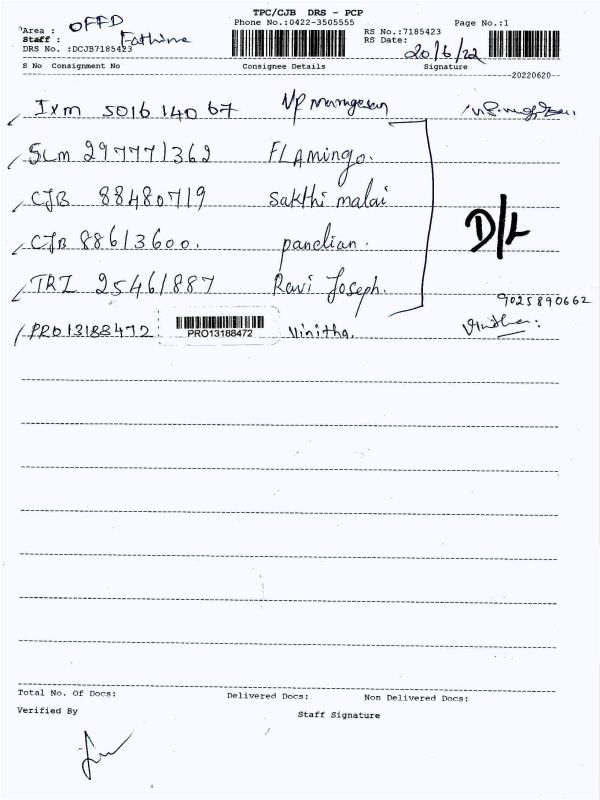 TPC/CJB DRS - PCP
Area : OFFD Phone No.:0422-3505555 Page No.:1
Staff : Fathima RS No.:7185423
DRS No. :DCJB7185423 RS Date: 20/6/22
S No Consignment No Consignee Details Signature
20220620
IXM 5016 140 67 NP murugesan
SLM 297771362 FLAmingo.
CJB 88480719 Sakthi malai
D/L
CJB 88613600. pandian.
TRZ 25461887 Ravi Joseph.
9025890662
PRO13188472 PRO13188472 Vinitha. Vinitha.
Total No. Of Docs: Delivered Docs: Non Delivered Docs:
Verified By Staff Signature